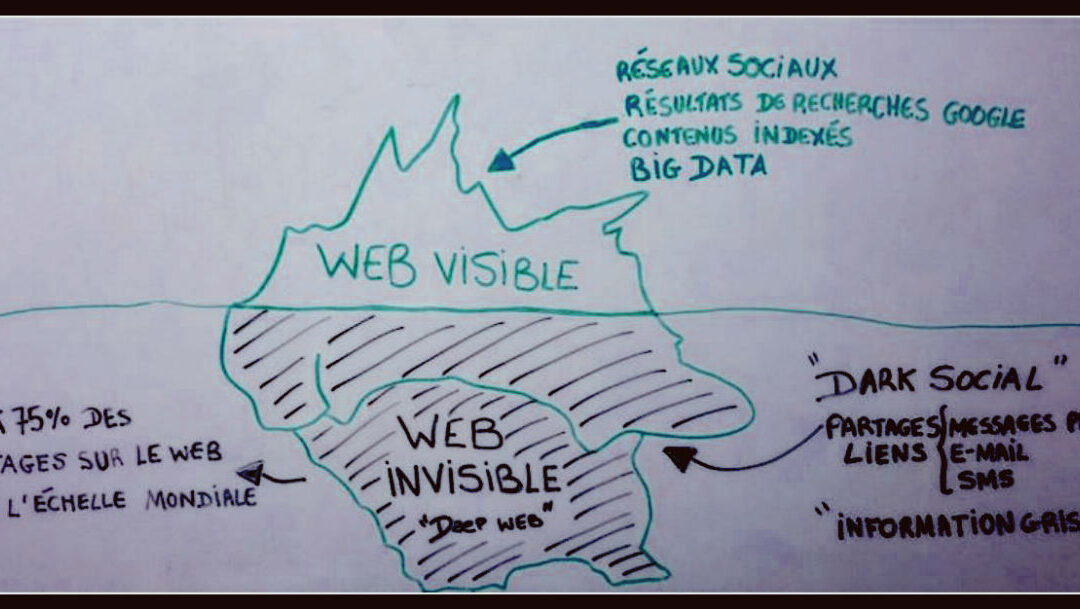 RÉSEAUX SOCiAUX
RÉSULTATS DE RECHERCHES GOOGLE
CONTENUS iNDEXÉS
BiG DATA
WEB ViSiBLE
75% DES
SUR LE WEB
L'ÉCHELLE MONDiALE
WEB
iNViSiBLE
"DEEP WEB"
"DARK SOCiAL"
PARTAGES MESSAGES
LiENS E-MAiL
SMS
"iNFORMATiON